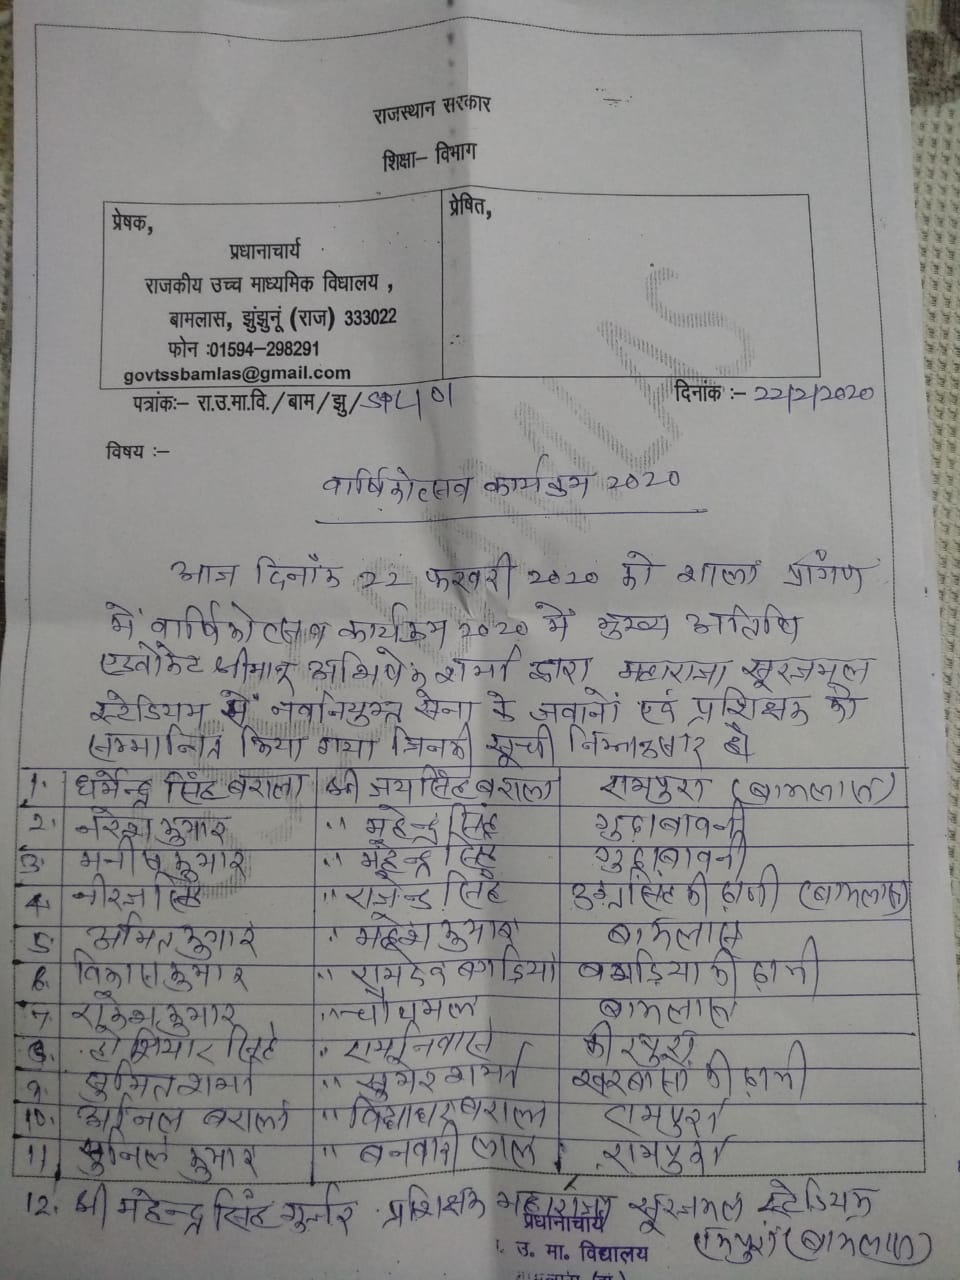 राजस्थान सरकार
शिक्षा– विभाग
प्रेषक,
प्रधानाचार्य
राजकीय उच्च माध्यमिक विधालय ,
बामलास, झुंझुनूं (राज) 333022
फोन :01594–298291
govtssbamlas@gmail.com
प्रेषित,
पत्रांकः– रा.उ.मा.वि./बाम/झु/SPL/01
दिनांक :– 22/2/2020
विषय :–
वार्षिकोत्सव कार्यक्रम 2020
आज दिनाँक 22 फरवरी 2020 को शाला प्राँगण
में वार्षिकोत्सव कार्यक्रम 2020 में मुख्य अतिथि
एडवोकेट श्रीमान् अभिषेक शर्मा द्वारा महाराजा सूरजमल
स्टेडियम में नवनियुक्त सेना के जवानों एवं प्रशिक्षक को
सम्मानित किया गया जिनकी सूची निम्नानुसार है
1. धर्मेन्द्र सिंह बराला श्री जयसिंह बराला रामपुरा (बामलास)
2. नरेश कुमार " महेन्द्र सिंह गुढ़ाबावनी
3. मनीष कुमार " महेन्द्र सिंह गुढ़ाबावनी
4. नीरज सिंह " राजेन्द्र सिंह सिंह की ढ़ाणी (बामलास)
5. अमित कुमार " महेश कुमार बामलास
6. विकास कुमार " रामदेव बगड़िया बगड़िया की ढ़ाणी
7. राकेश कुमार " चौथमल बामलास
8. होशियार सिंह " रामनिवास कीरपुरा
9. सुमित शर्मा " सुमेर शर्मा खरबासों की ढ़ाणी
10. अनिल बराला " विद्याधर बराला रामपुरा
11 सुनिल कुमार " बनवारी लाल रामपुरा
12. श्री महेन्द्र सिंह गुर्जर प्रशिक्षक महाराजा सूरजमल स्टेडियम
रामपुरा (बामलास)
प्रधानाचार्य
उ. मा. विद्यालय